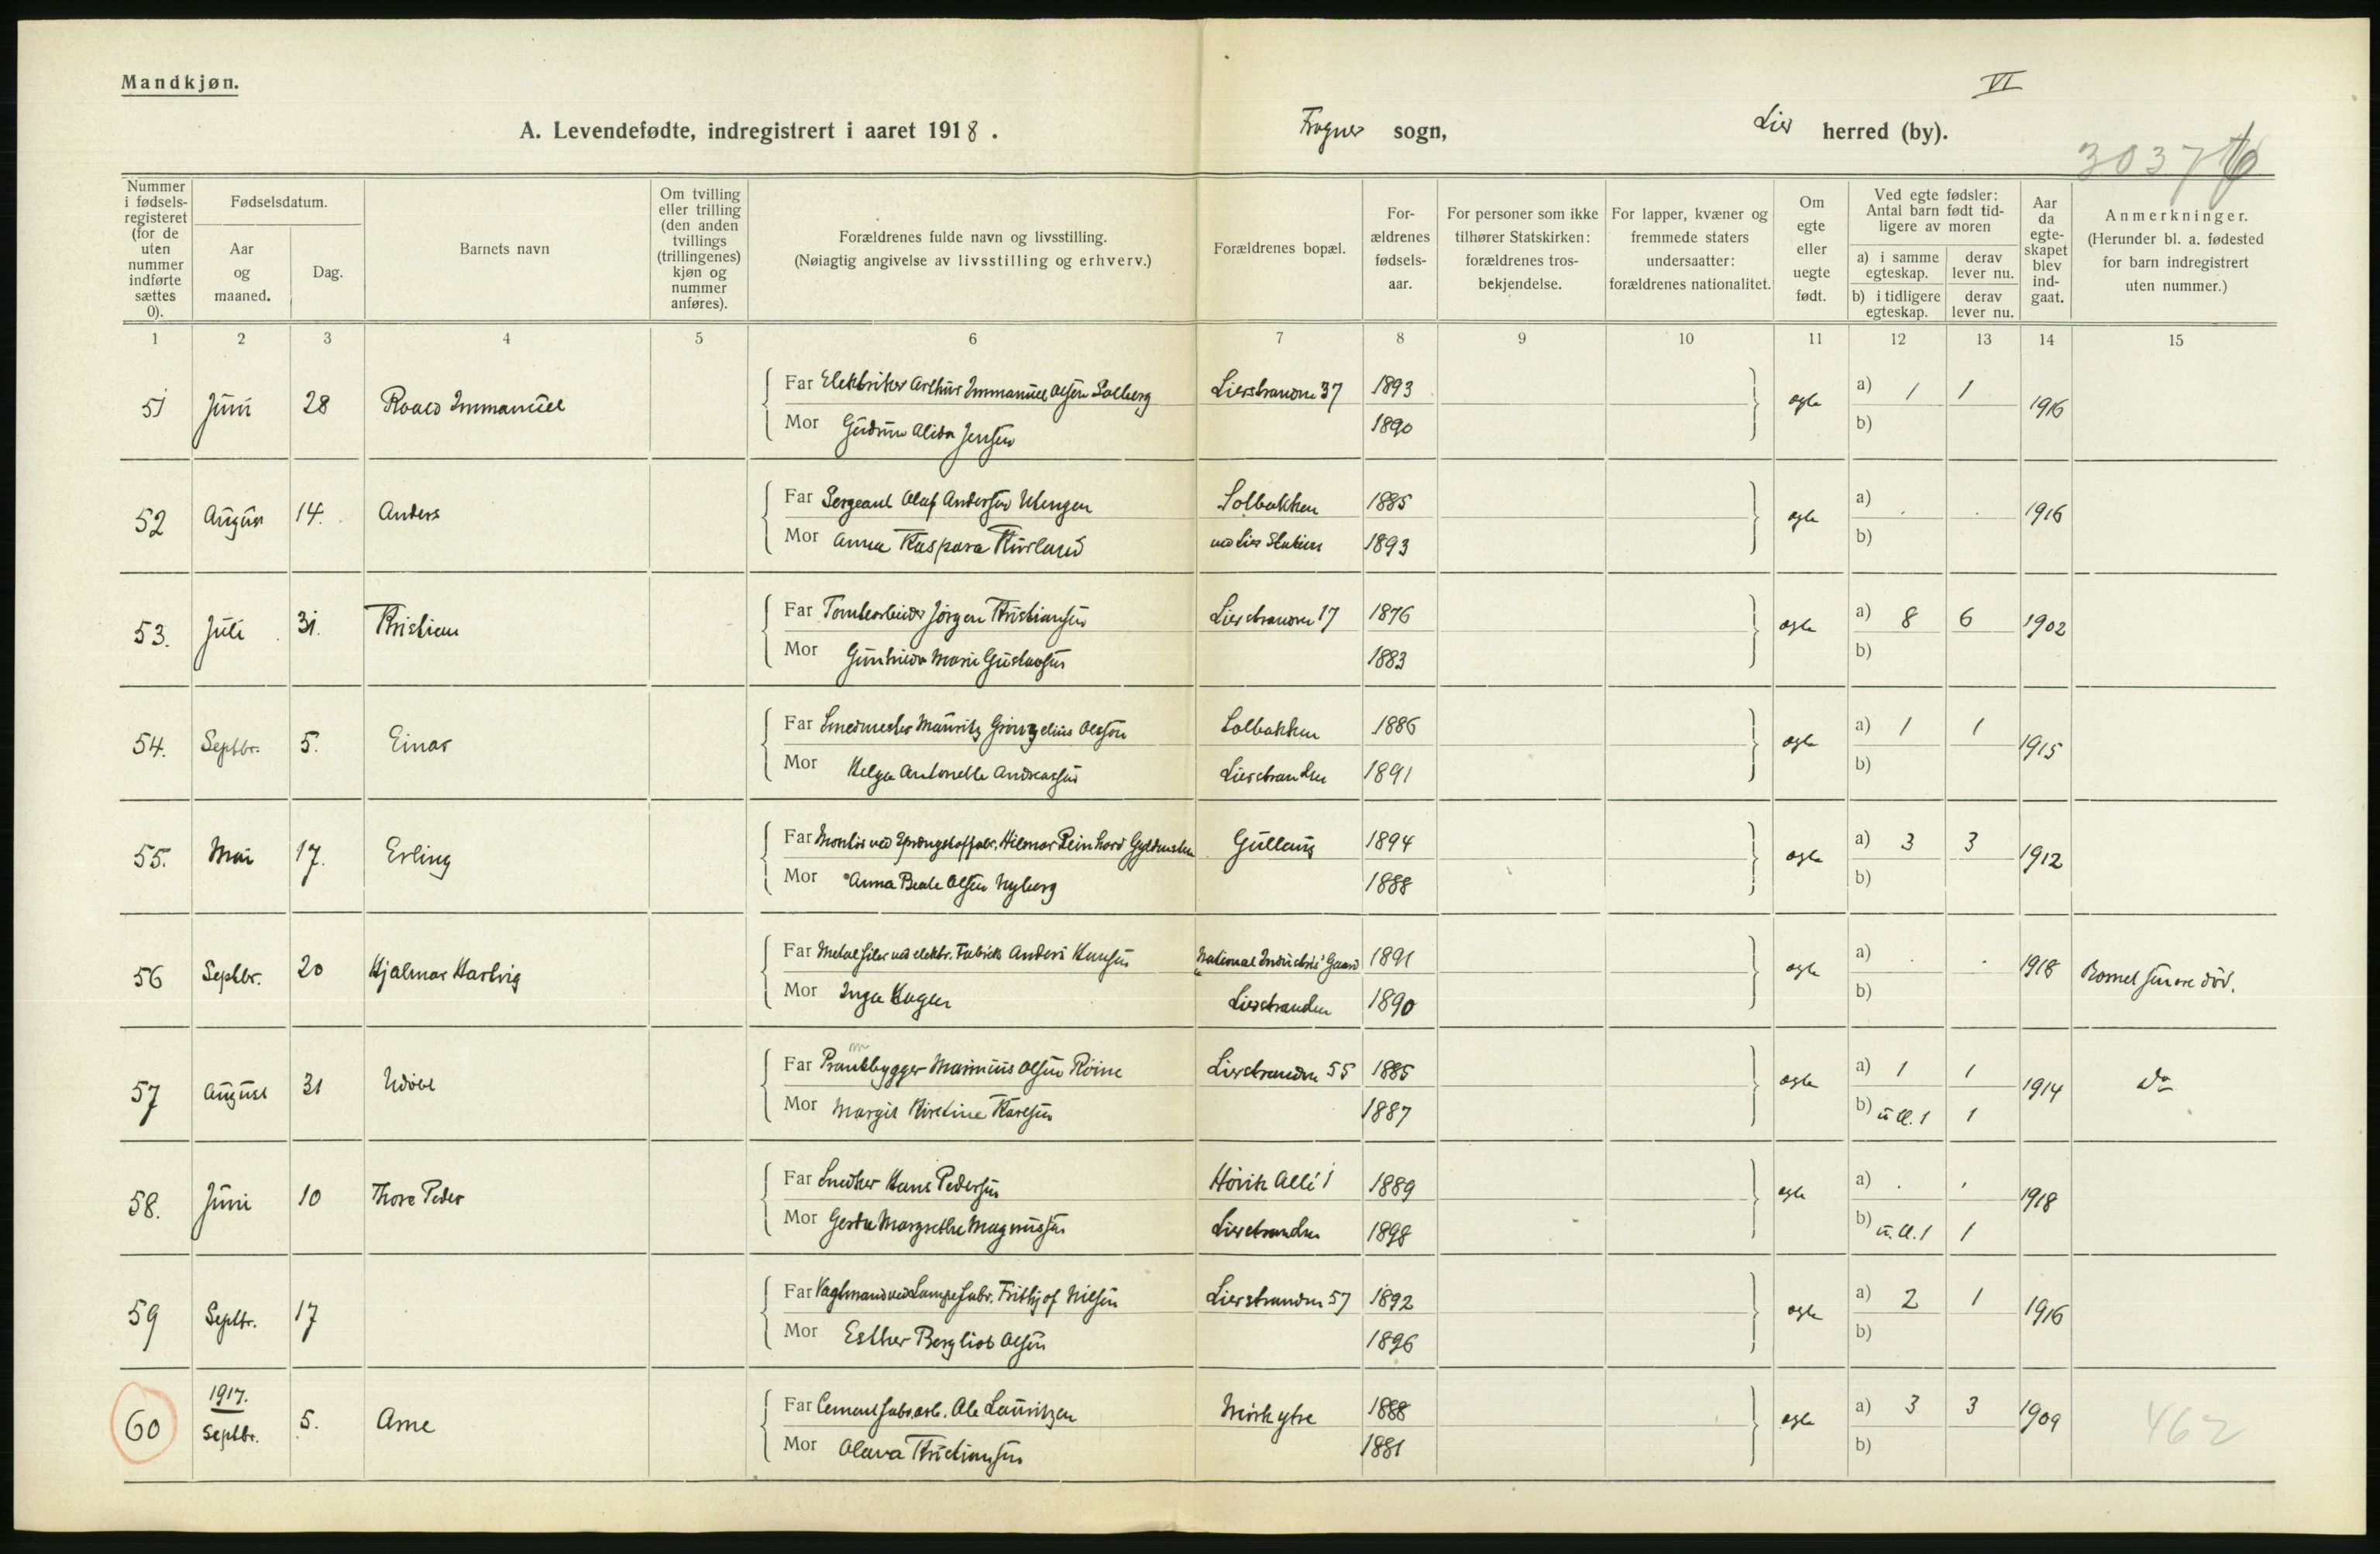 Mandkjøn.
VI
A. Levendefødte, indregistrert i aaret 1918.
Frogner sogn,
Lier herred (by).
3037
Nummer i fødsels-registeret (for de uten nummer indførte sættes 0).
Fødselsdatum.
Aar og maaned.
Dag.
Barnets navn
Om tvilling eller trilling (den anden tvillings (trillingenes) kjøn og nummer anføres).
Forældrenes fulde navn og livsstilling.
(Nøiagtig angivelse av livsstilling og erhverv.)
Forældrenes bopæl.
For-ældrenes fødsels-aar.
For personer som ikke tilhører Statskirken: forældrenes tros-bekjendelse.
For lapper, kvæner og fremmede staters undersaatter: forældrenes nationalitet.
Om egte eller uegte født.
Ved egte fødsler: Antal barn født tid-ligere av moren
a) i samme egteskap.
derav lever nu.
b) i tidligere egteskap.
derav lever nu.
Aar da egte-skapet blev ind-gaat.
Anmerkninger.
(Herunder bl. a. fødested for barn indregistrert uten nummer.)
1 2 3 4 5 6 7 8 9 10 11 12 13 14 15
51 Juni 28 Roald Immanuel Far Elektriker Arthur Immanuel Olsen Solberg Lierstranden 37 1893 egte a) 1 1 1916
Mor Gudrun Alida Jensen 1890 b)
52 August 14. Anders Far Sergeant Olaf Andersen Utengen Solbakken 1885 egte a) . . 1916
Mor Anna Kaspara Hurland ved Lier Station 1893 b)
53. Juli 31. Kristian Far Tomtearbeider Jörgen Kristiansen Lierstranden 17 1876 egte a) 8 6 1902
Mor Gunhilda Marie Gustavsen 1883 b)
54. Septbr. 5. Einar Far Smedmester Mauritz Olsson Solbakken 1886 egte a) 1 1 1915
Mor Helga Antonette Andreassen Lierstranden 1891 b)
55. Mai 17. Erling Far Montör ved Sprængstoffabr. Hilmar Reinhard Gyldensten Gullaug 1894 egte a) 3 3 1912
Mor Anna Beate Olsen Nyberg 1888 b)
56 Septbr. 20 Hjalmar Hartvig Far Metalfiler ved elektr. Fabrik Anders Hansen "National Industris" Gaard 1891 egte a) . . 1918 Barnet senere död.
Mor Inga Hagen Lierstranden 1890 b)
57 August 31 Udöbt Far Prambygger Marinius Olsen Röine Lierstranden 55 1885 egte a) 1 1 1914 do
Mor Margit Kirstine Karlsen 1887 b) u. Æ. 1 1
58. Juni 10 Thore Peder Far Snedker Hans Pedersen Hörik Allé 1 1889 egte a) . . 1918
Mor Gerda Margrethe Magnussen Lierstranden 1898 b) u. Æ. 1 1
59 Septbr. 17 Far Vagtmand ved Lampefabr. Frithjof Nilsen Lierstranden 57 1892 egte a) 2 1 1916
Mor Esther Bergliot Olsen 1896 b)
60 1917. Septbr. 5. Arne Far Cementfabr.arb. Ole Lauritzen Mörk ytre 1888 egte a) 3 3 1909 462
Mor Olava Kristiansen 1881 b)